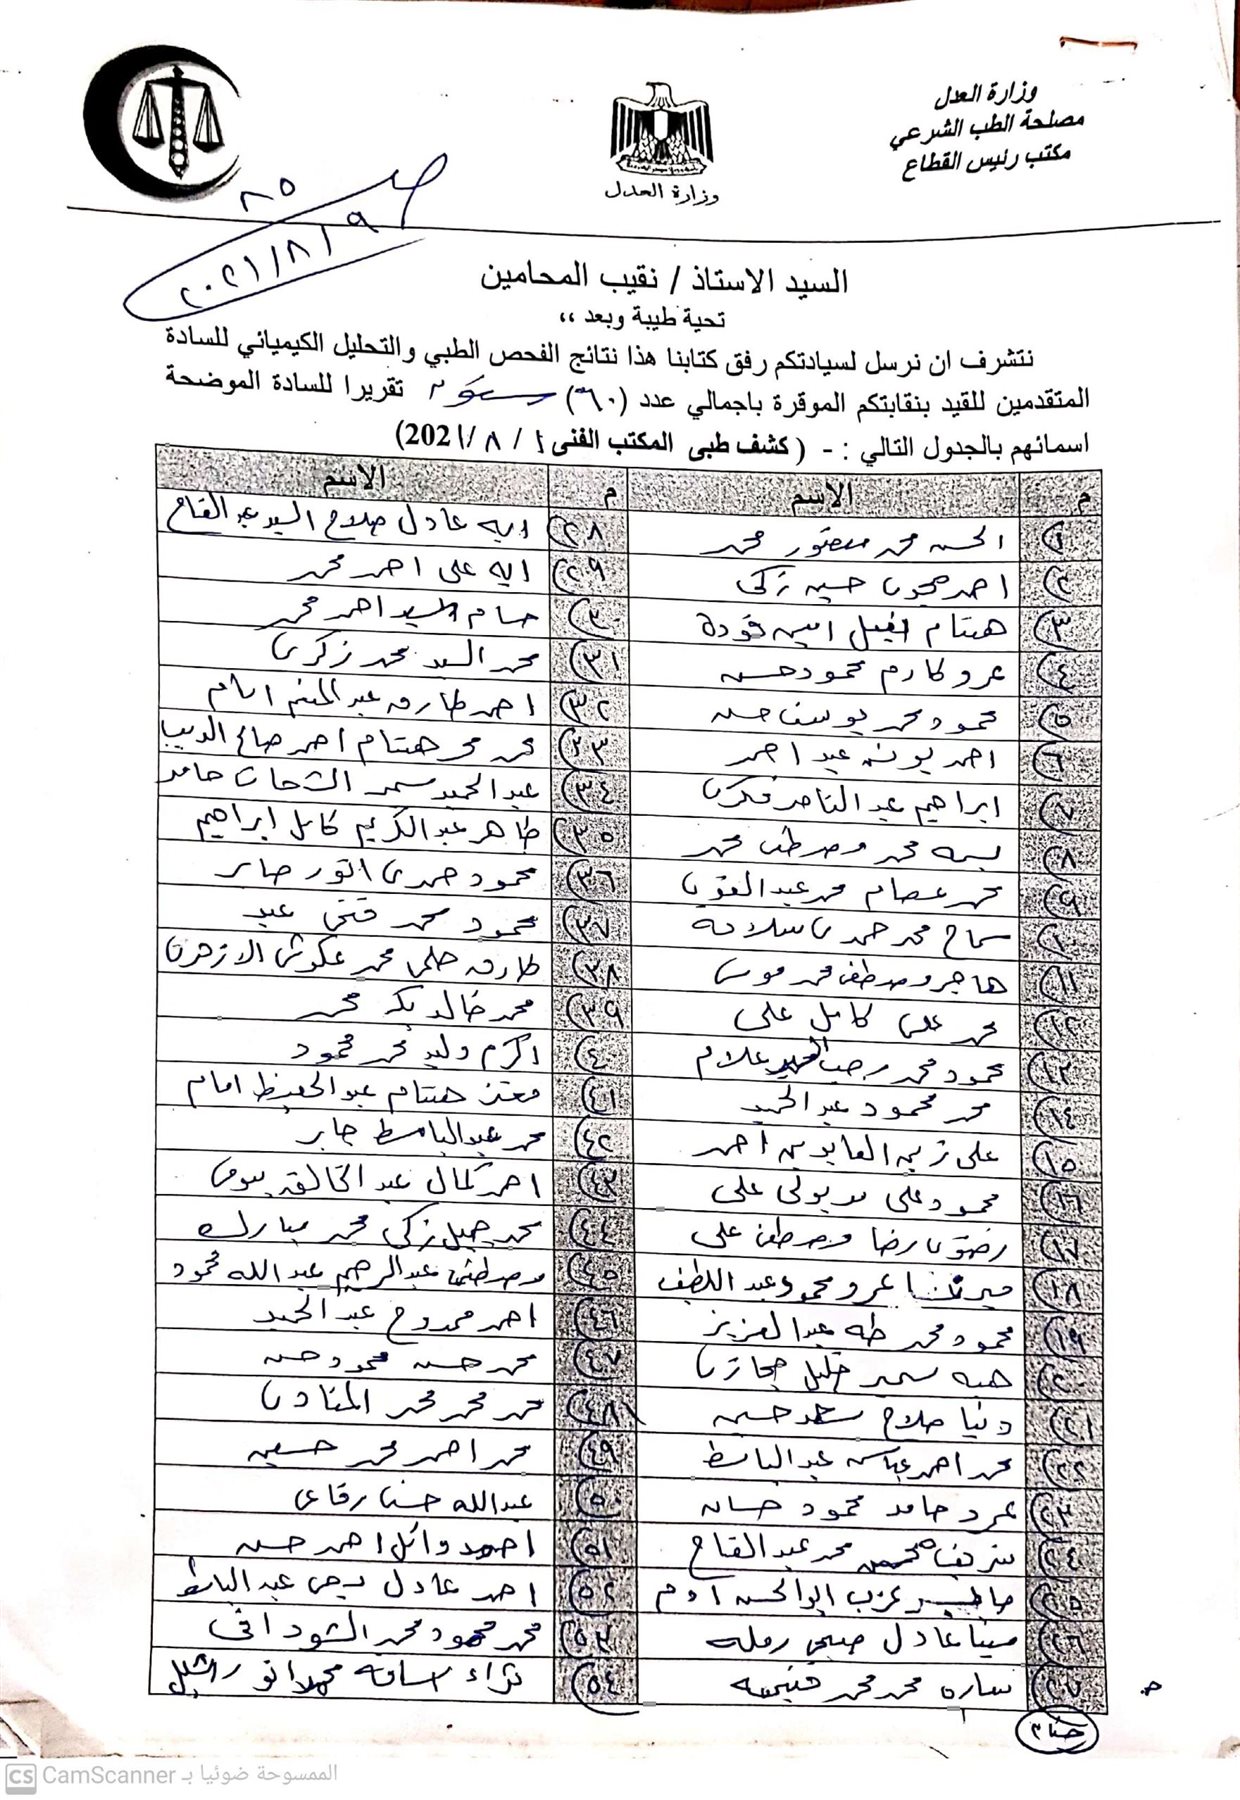 وزارة العدل
مصلحة الطب الشرعي
مكتب رئيس القطاع
وزارة العدل
صـ ٨٥
٢٠٢١/٨/٩
السيد الاستاذ / نقيب المحامين
تحية طيبة وبعد ،،
نتشرف ان نرسل لسيادتكم رفق كتابنا هذا نتائج الفحص الطبي والتحليل الكيميائي للسادة
المتقدمين للقيد بنقابتكم الموقرة باجمالي عدد (٦٠) ستون تقريرا للسادة الموضحة
اسمائهم بالجدول التالي : - ( كشف طبى المكتب الفنى ١ / ٨ /2021)
م الاسم
١ الحسن محمد منصور محمد
٢ احمد محمد حسين زكى
٣ هشام نبيل امين فودة
٤ عمرو كارم محمود حسن
٥ محمود محمد يوسف حسن
٦ احمد يونس عيد احمد
٧ ابراهيم عبد الناصر فكرى
٨ بسمه محمد مصطفى محمد
٩ محمد عصام محمد عبد القوى
١٠ سماح محمد حمدى سلامه
١١ هاجر مصطفى محمد موسى
١٢ محمد على كامل على
١٣ محمود محمد رجب علام
١٤ محمد محمود عبد الحميد
١٥ على زين العابدين احمد
١٦ محمود على مدبولى على
١٧ رضوى رضا مصطفى على
١٨ ميرنا عمرو محمود عبد اللطيف
١٩ محمود محمد طه عبد العزيز
٢٠ هبه سمير خليل حجازى
٢١ دنيا صلاح سعد حسين
٢٢ محمد احمد عباس عبد الباسط
٢٣ عمرو حامد محمود حسان
٢٤ شريف محمد عبد الفتاح
٢٥ عزب ابو الحسن ادم
٢٦ مينا عادل صبحى رمله
٢٧ ساره محمد محمد
م الاسم
٢٨ ايه عادل صلاح السيد عبد الفتاح
٢٩ ايه على احمد محمد
٣٠ حسام السيد احمد محمد
٣١ محمد السيد محمد زكرى
٣٢ احمد طارق عبد المنعم امام
٣٣ محمد محمد هشام احمد صالح الديب
٣٤ عبد الحميد سمير الشحات حامد
٣٥ طاهر عبد الكريم كامل ابراهيم
٣٦ محمود حمدى انور صابر
٣٧ محمود محمد فتحى عيد
٣٨ طارق حلمى محمد عكوش الازهرى
٣٩ محمد خالد بكر محمد
٤٠ اكرم وليد محمد محمود
٤١ معتز هشام عبد الحفيظ امام
٤٢ محمد عبد الباسط جابر
٤٣ احمد كمال عبد الخالق بيومى
٤٤ محمد جميل زكى محمد مبارك
٤٥ مصطفى عبد الرحيم عبد الله محمود
٤٦ احمد ممدوح عبد الحميد
٤٧ محمد حسن محمود حسن
٤٨ محمد محمد محمد المنادى
٤٩ محمد احمد محمد حسين
٥٠ عبد الله حسن رفاعى
٥١ احمد وائل احمد حسن
٥٢ احمد عادل يحيى عبد الباسط
٥٣ محمد محمود محمد الشودافى
٥٤ ثراء اسامه محمد انور
CS CamScanner الممسوحة ضوئيا بـ